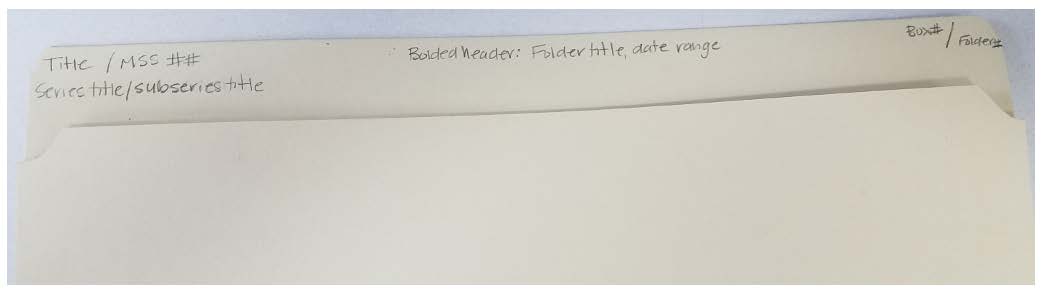 Title / MSS ##
Series title/subseries title
Bolded header: Folder title, date range
Box# / Folder#